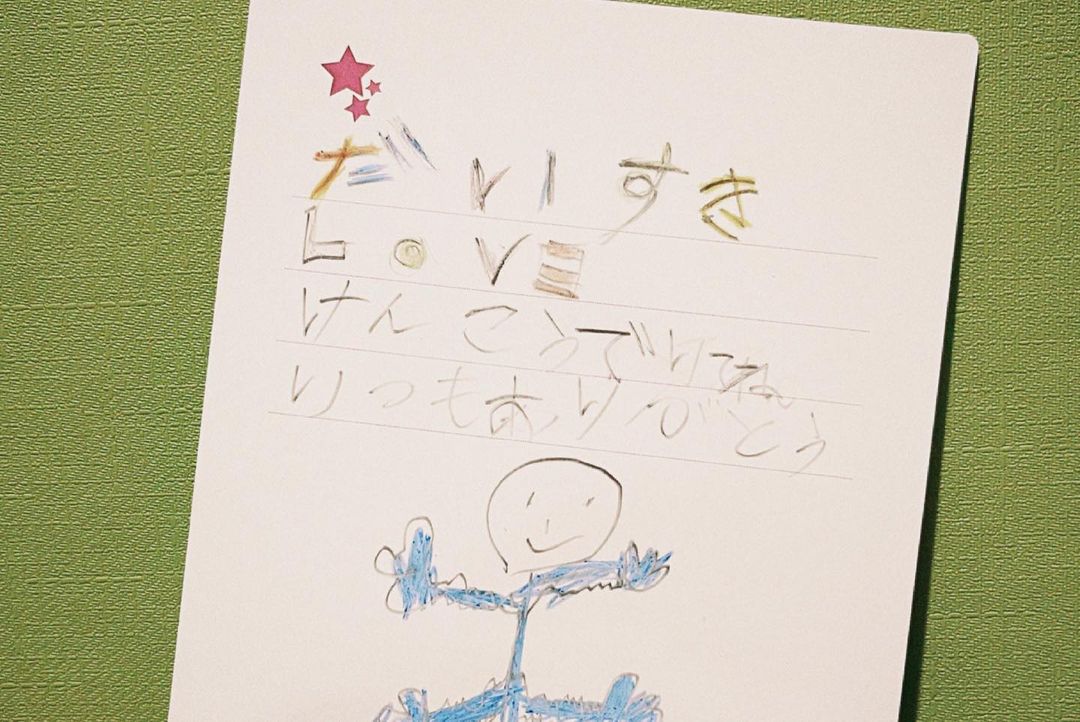 だいすき
LOVE
けんこうでいてね
いつもありがとう